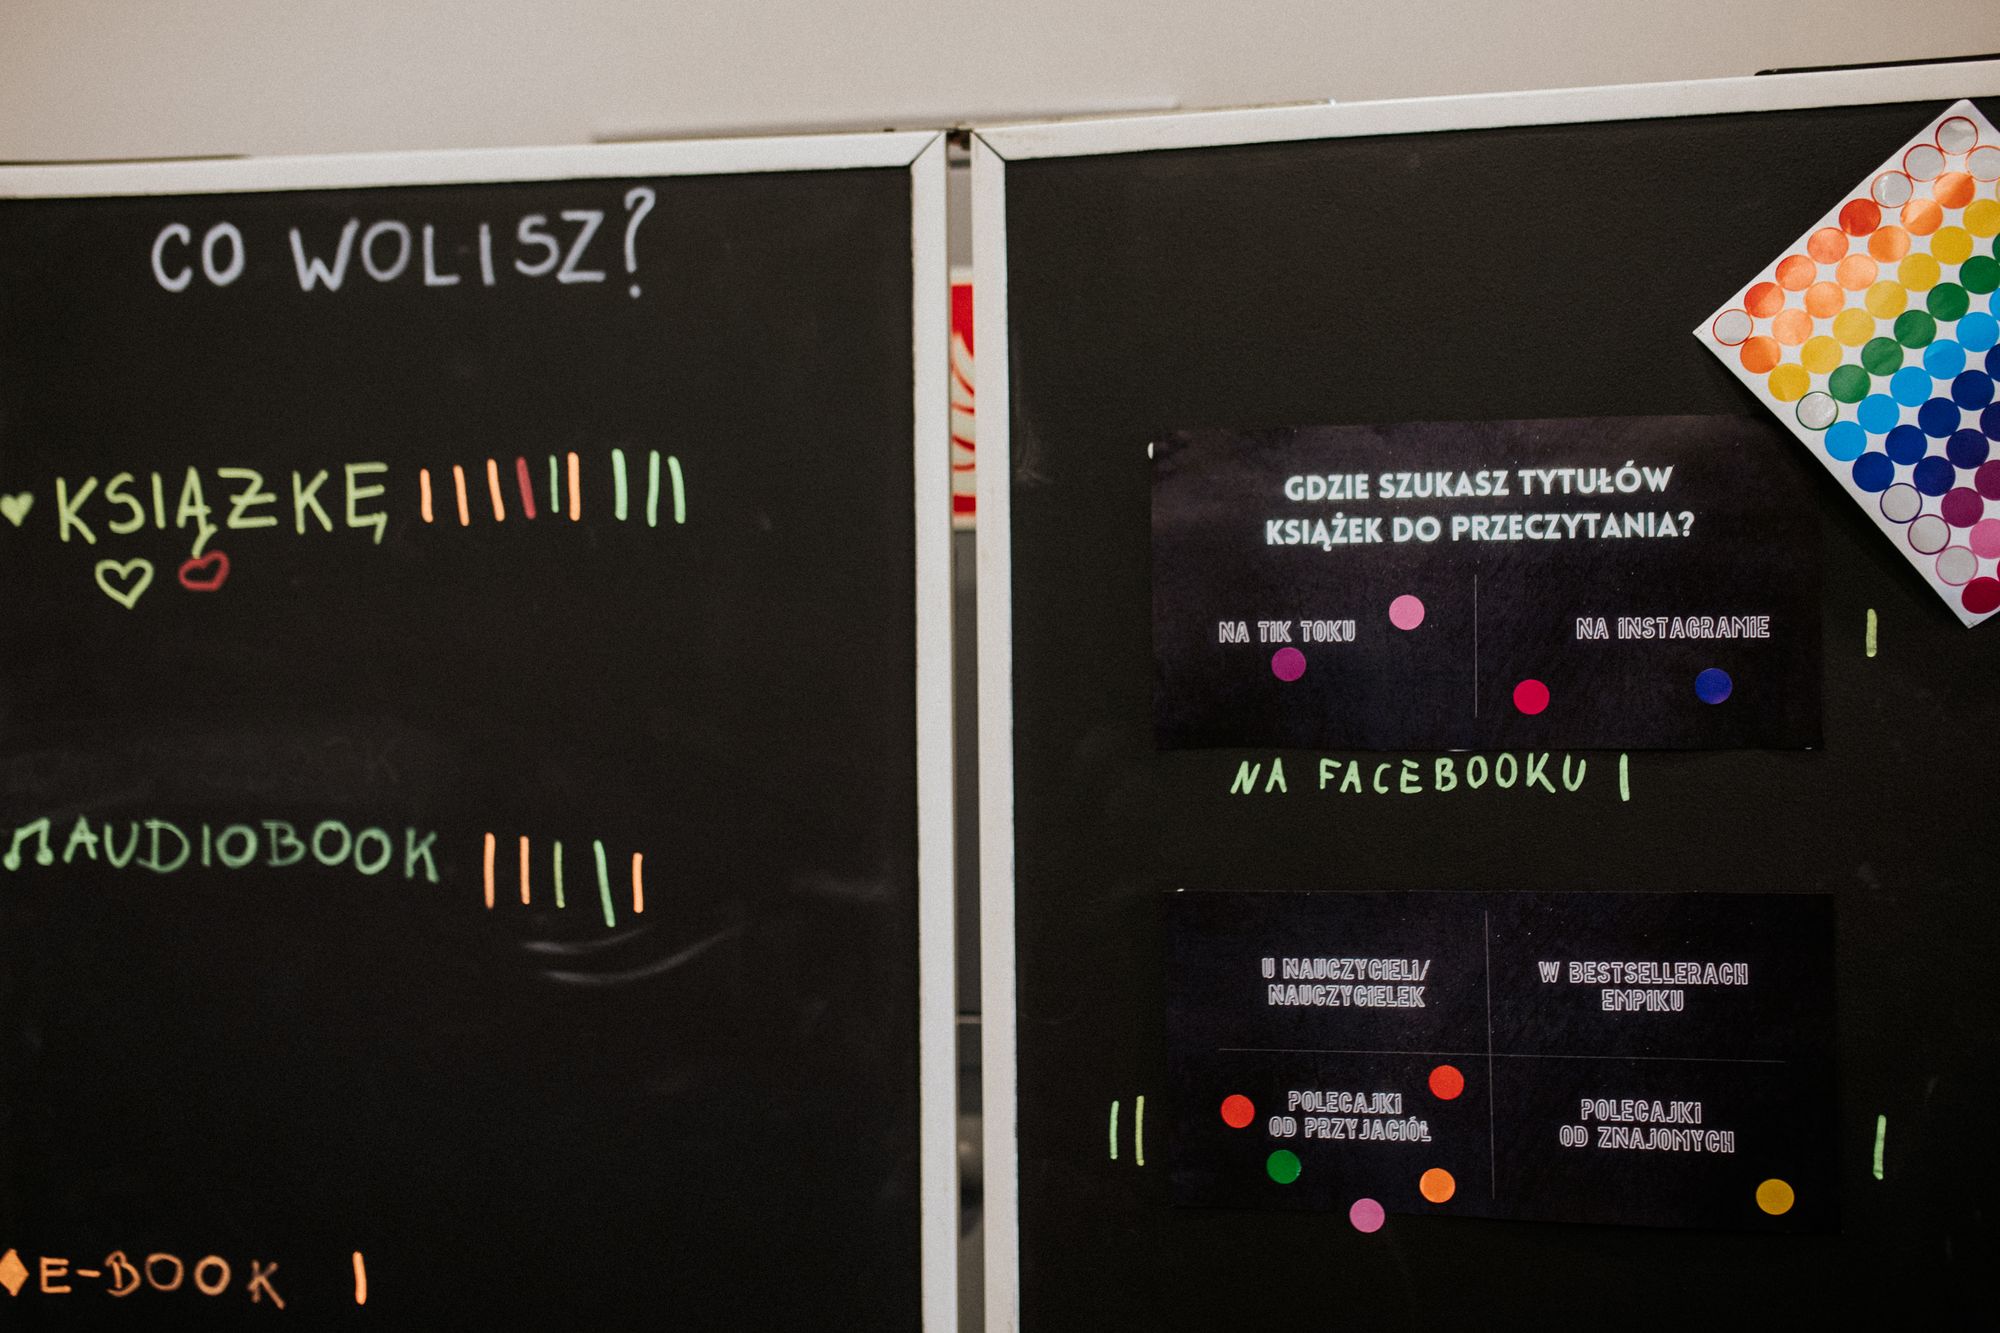 CO WOLISZ?
KSIĄZKĘ
AUDIOBOOK
E-BOOK
GDZIE SZUKASZ TYTUŁÓW
KSIĄŻEK DO PRZECZYTANIA?
NA TIK TOKU
NA INSTAGRAMIE
NA FACEBOOKU
U NAUCZYCIELI/
NAUCZYCIELEK
W BESTSELLERACH
EMPIKU
POLECAJKI
OD PRZYJACIÓŁ
POLECAJKI
OD ZNAJOMYCH